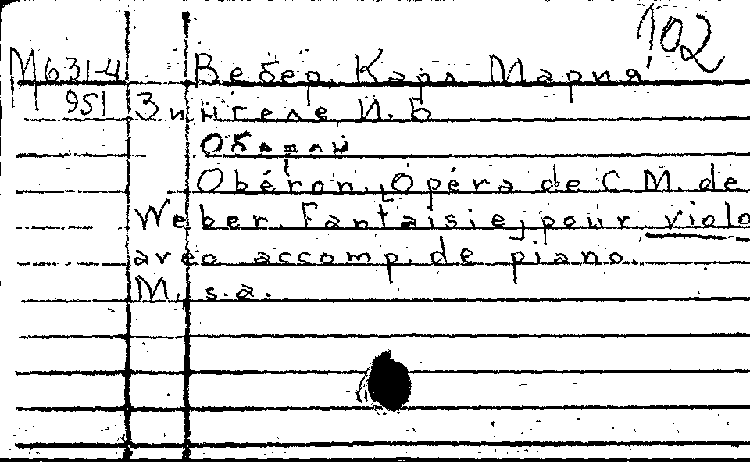 102
М631-4 Вебер, Карл Мария
951 Зингеле И. Б
Obéron. Opéra de C. M. de
Weber. Fantaisie pour violo
avec accomp. de piano.
M, s.a.